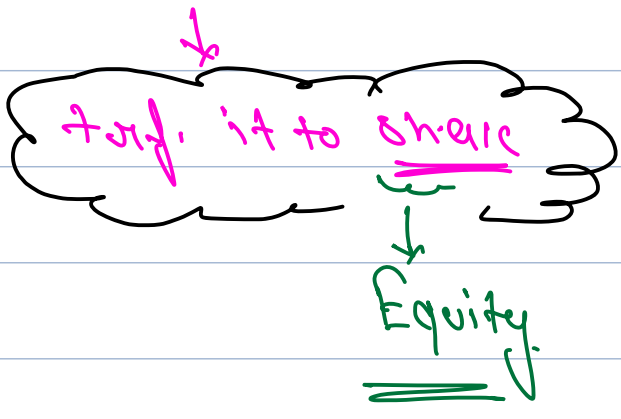 trf. it to share
Equity.